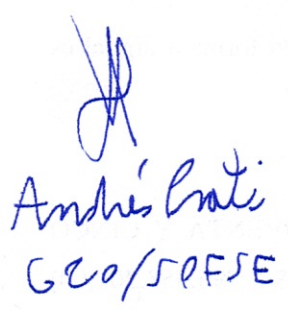 Andrés Prati
G20/SPFSE